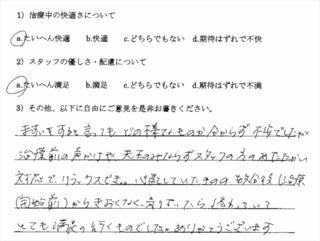 1) 治療中の快適さについて
a.たいへん快適 b.快適 c.どちらでもない d.期待はずれで不快
2) スタッフの優しさ・配慮について
a.たいへん満足 b.満足 c.どちらでもない d.期待はずれで不満
3) その他、以下に自由にご意見を是非お書きください。
ますいをすると言っても、どの様なものか分からず不安でしたが
治療前の声かけや、先生のみならずスタッフの方のあたたかい
対応で、リラックスでき。心配していたものの
(開始前)からきおくなく、寝ていたら終わっていて
とても満足の行くものでした。ありがとうございます